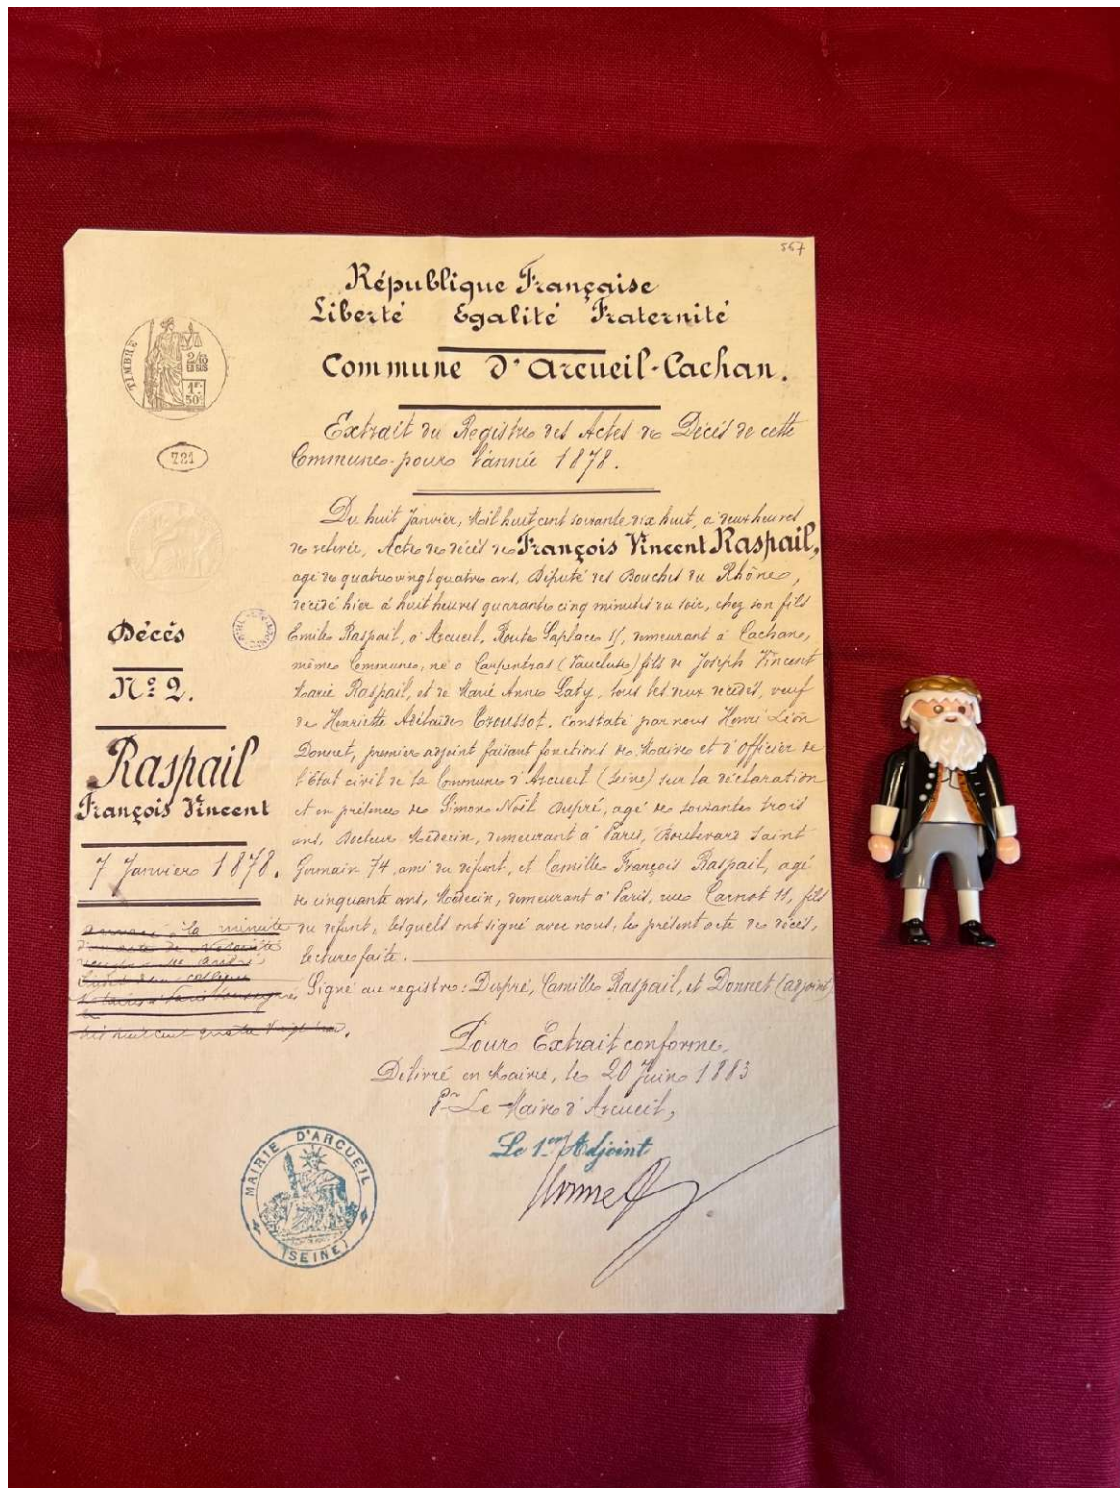 557
République Française
Liberté Egalité Fraternité
Commune d'Arcueil-Cachan.
TIMBRE
2/10
EN SUS
1F
50C
721
Extrait du Registre des Actes de Décès de cette
Commune pour l'année 1878.
Du huit Janvier, Mil huit cent soixante dix huit, à deux heures
de relevée, Acte de décès de François Vincent Raspail,
agé de quatre vingt quatre ans, Député des Bouches du Rhône,
décédé hier à huit heures quarante cinq minutes du soir, chez son fils
Emile Raspail, à Arcueil, Route Laplace, demeurant à Cachan,
même Commune, né à Carpentras (Vaucluse) fils de Joseph Vincent
Marie Raspail, et de Marie Anne Laty, tous les deux décédés, veuf
de Henriette Adélaïde Troussot. Constaté par nous Henri Léon
Donnet, premier adjoint faisant fonctions de Maire et d'Officier de
l'Etat civil de la Commune d'Arcueil (Seine) sur la déclaration
et en présence de Simon Noël Dupré, agé de soixante trois
ans, Docteur Médecin, demeurant à Paris, Boulevard Saint
Germain 74, ami du défunt, et Camille François Raspail, agé
de cinquante ans, Médecin, demeurant à Paris, rue Carnot 11, fils
du défunt, lesquels ont signé avec nous, le présent acte de décès,
lecture faite.
Signé au registre: Dupré, Camille Raspail, et Donnet (adjoint)
Décès
No 2.
Raspail
François Vincent
7 Janvier 1878.
annexé à la minute
d'un acte de Notoriété
Pour Extrait conforme,
Délivré en Mairie, le 20 Juin 1883
Pr Le Maire d'Arcueil,
Le 1er Adjoint
Donnet
MAIRIE D'ARCUEIL
(SEINE)